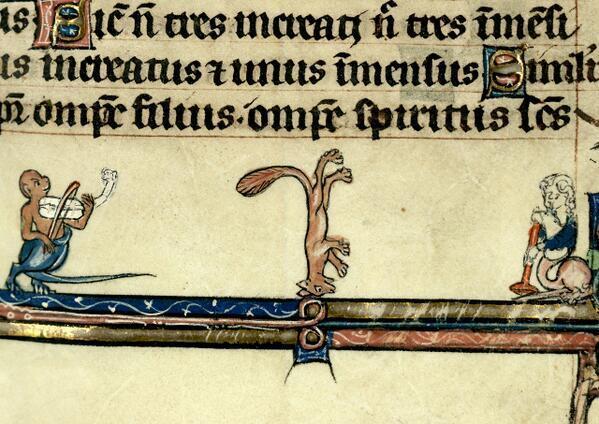 us Sic̄ n̄ tres increatı n̄ tres īmēsi
us increatus ⁊ unus īmensus Simili
omp̄s filius · omp̄s spiritus sc̄s